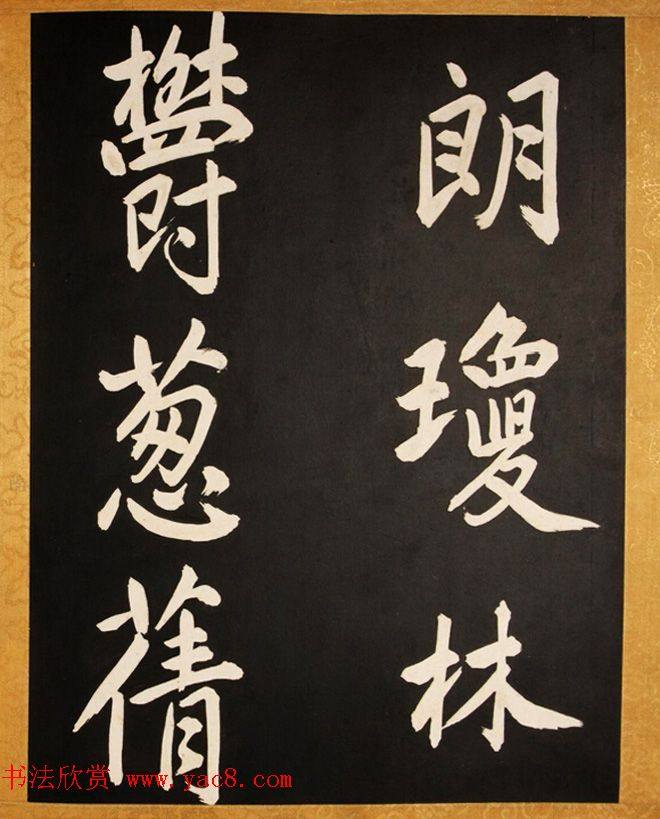 朗瓊林
欝葱蒨
书法欣赏 www.yac8.com